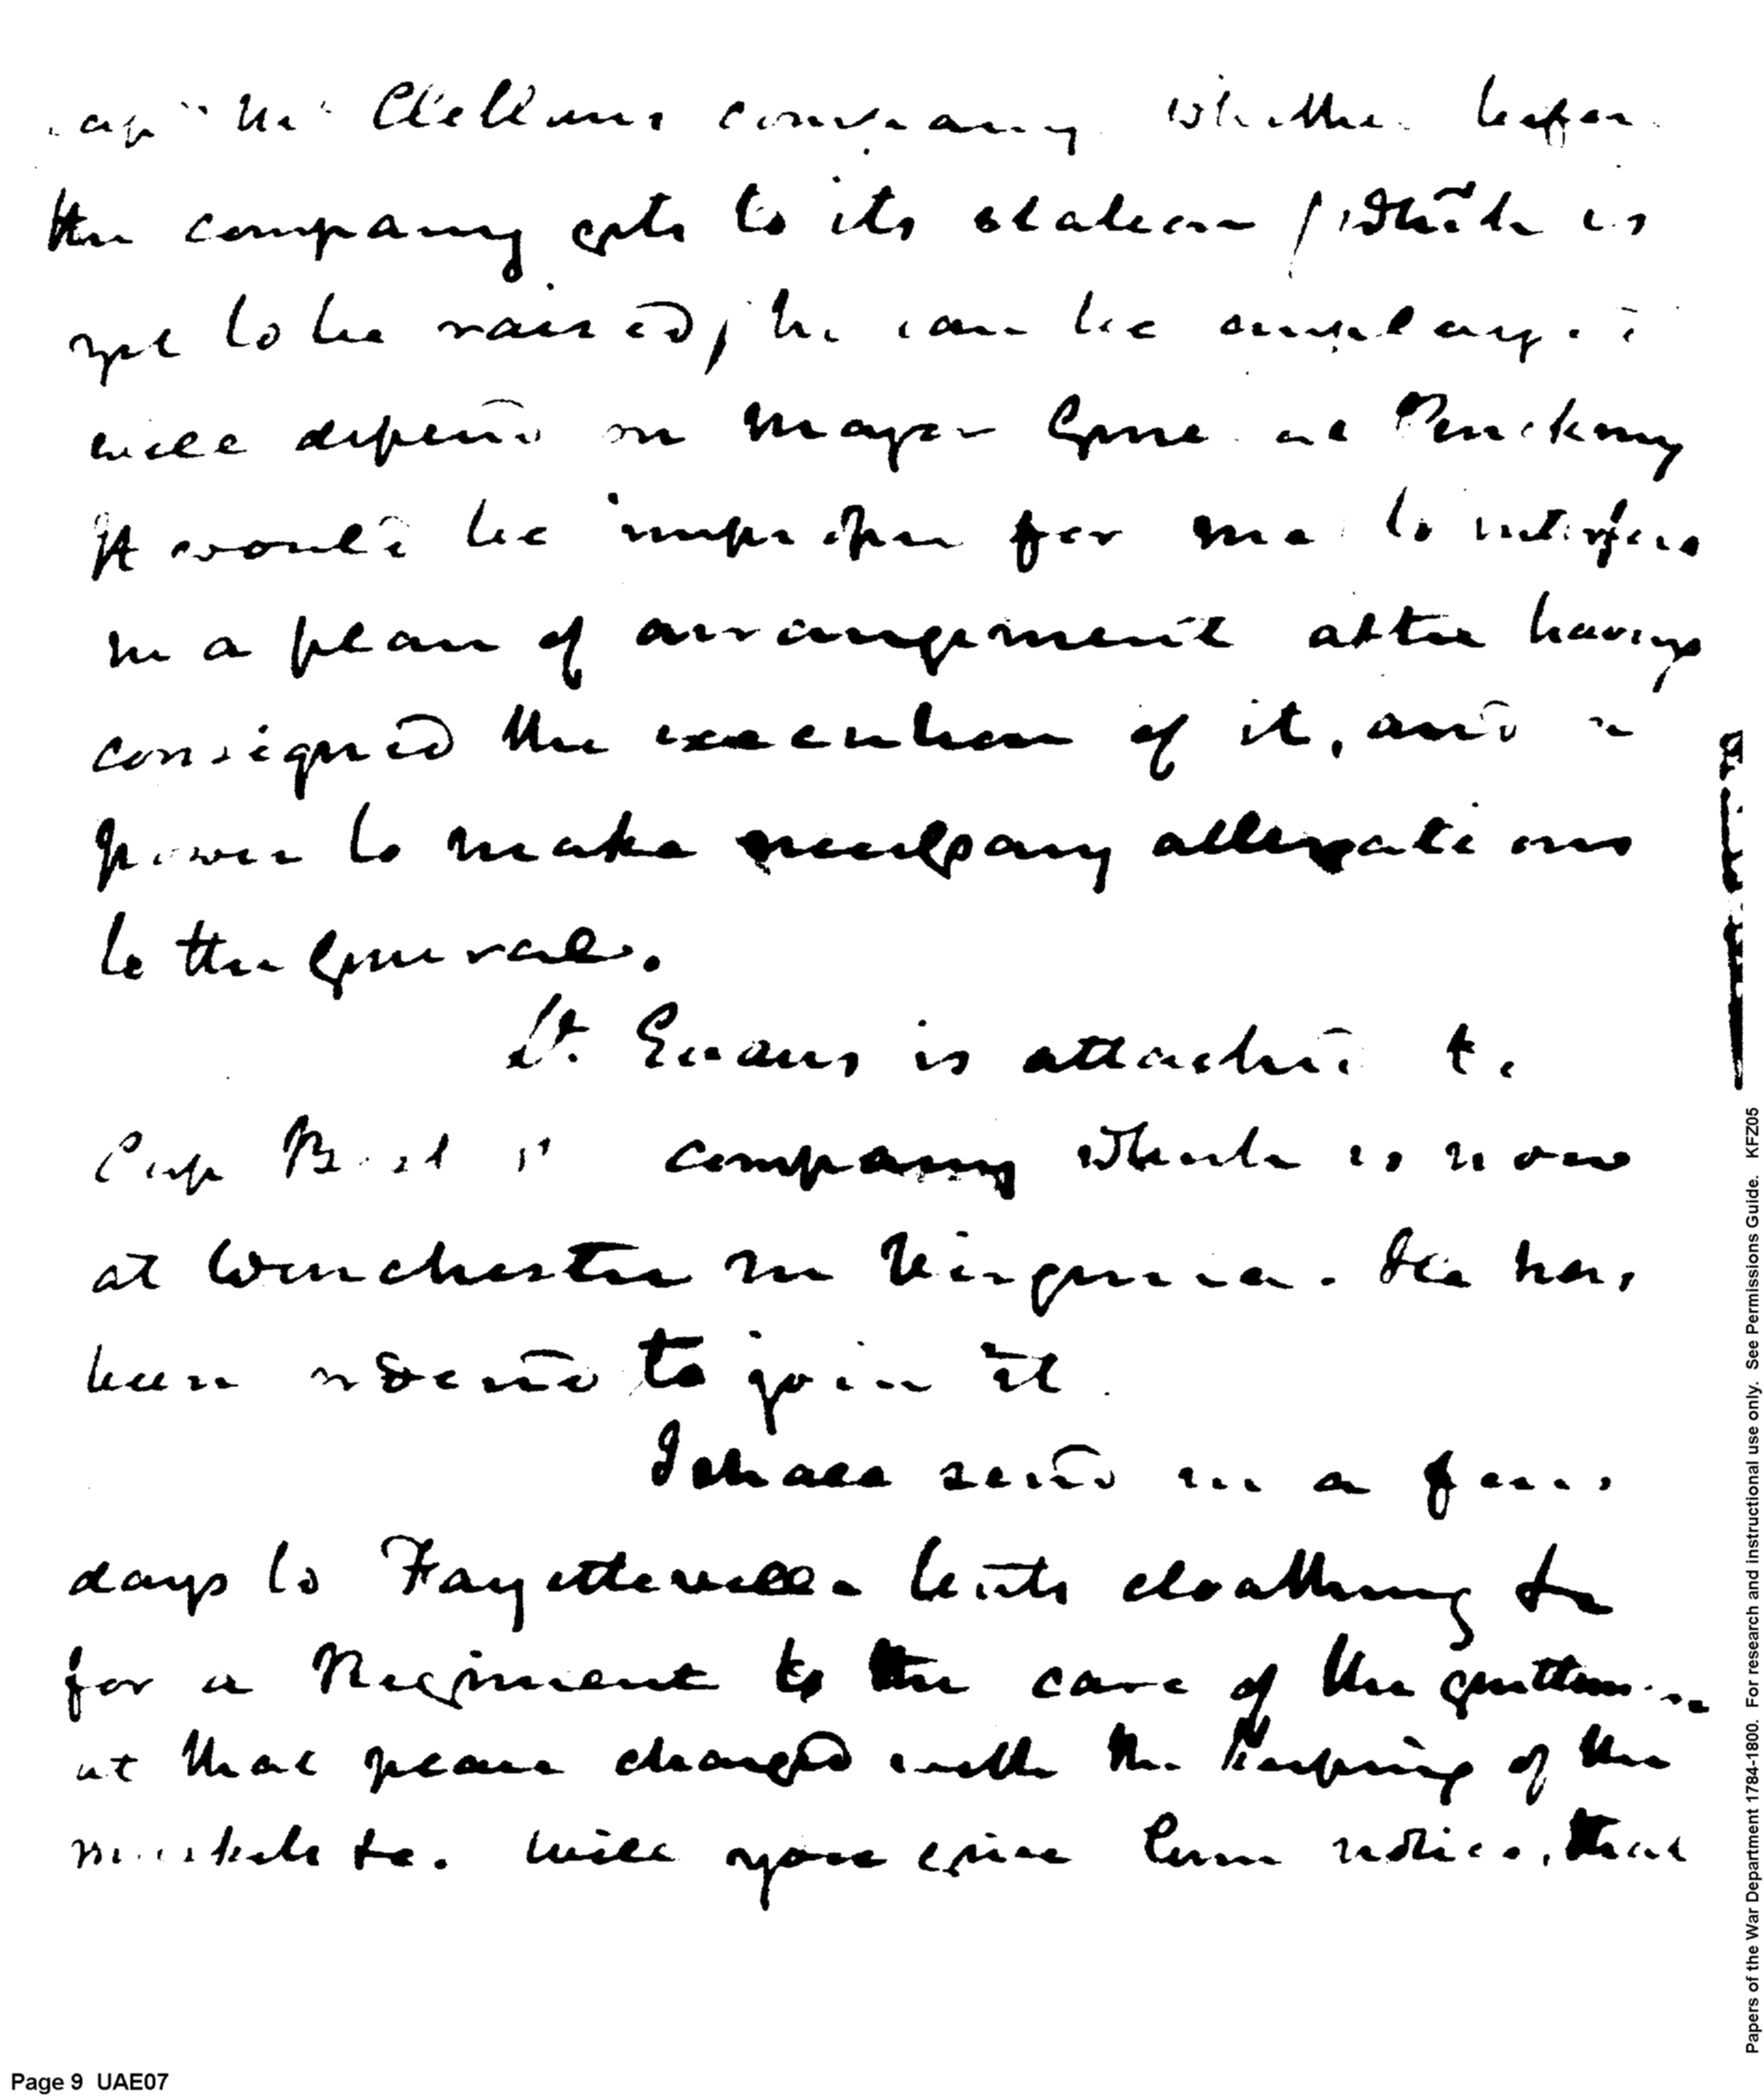 Cap.n Mc Clellans company whether before
the company gets to its station (which is
yet to be raised) he can be employed
will depend on Major General Pinckney
It would be improper for me to interfere
in a plan of arrangement after having
consigned the execution of it, and a
power to make necessary alterations
to the General.
Lt. Evans is attached to
Cap company which is now
at Winchester in Virginia. He has
been ordered to join it.
I shall send in a few
days to Fayetteville tents cloathing &c
for a Regiment to the care of the gentleman
at that place charged with the keeping of the
muskets &c. Will you give him notice, that
Papers of the War Department 1784-1800. For research and instructional use only. See Permissions Guide. KFZ05
Page 9 UAE07